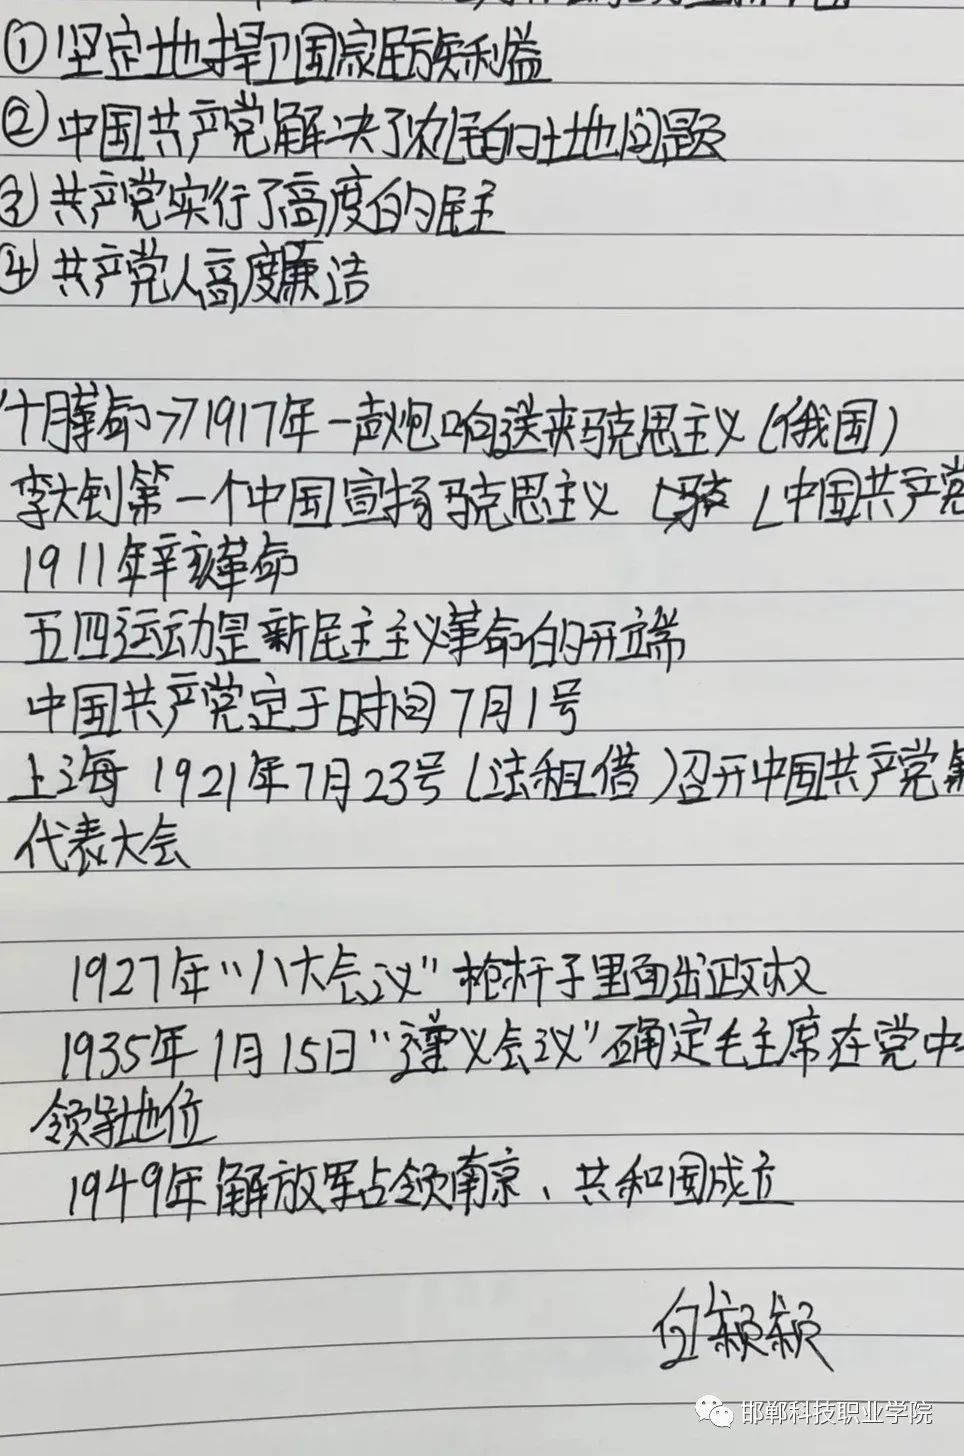 ①坚定地捍卫国家民族利益
②中国共产党解决了农民的土地问题
③共产党实行了高度的民主
④共产党人高度廉洁
十月革命→1917年一声炮响送来马克思主义(俄国)
李大钊第一个中国宣扬马克思主义 中国共产党
1911年辛亥革命
五四运动是新民主主义革命的开端
中国共产党定于时间7月1号
上海 1921年7月23号(法租借)召开中国共产党第
代表大会
1927年“八大会议”枪杆子里面出政权
1935年1月15日“遵义会议”确定毛主席在党中
领导地位
1949年解放军占领南京、共和国成立
邯郸科技职业学院